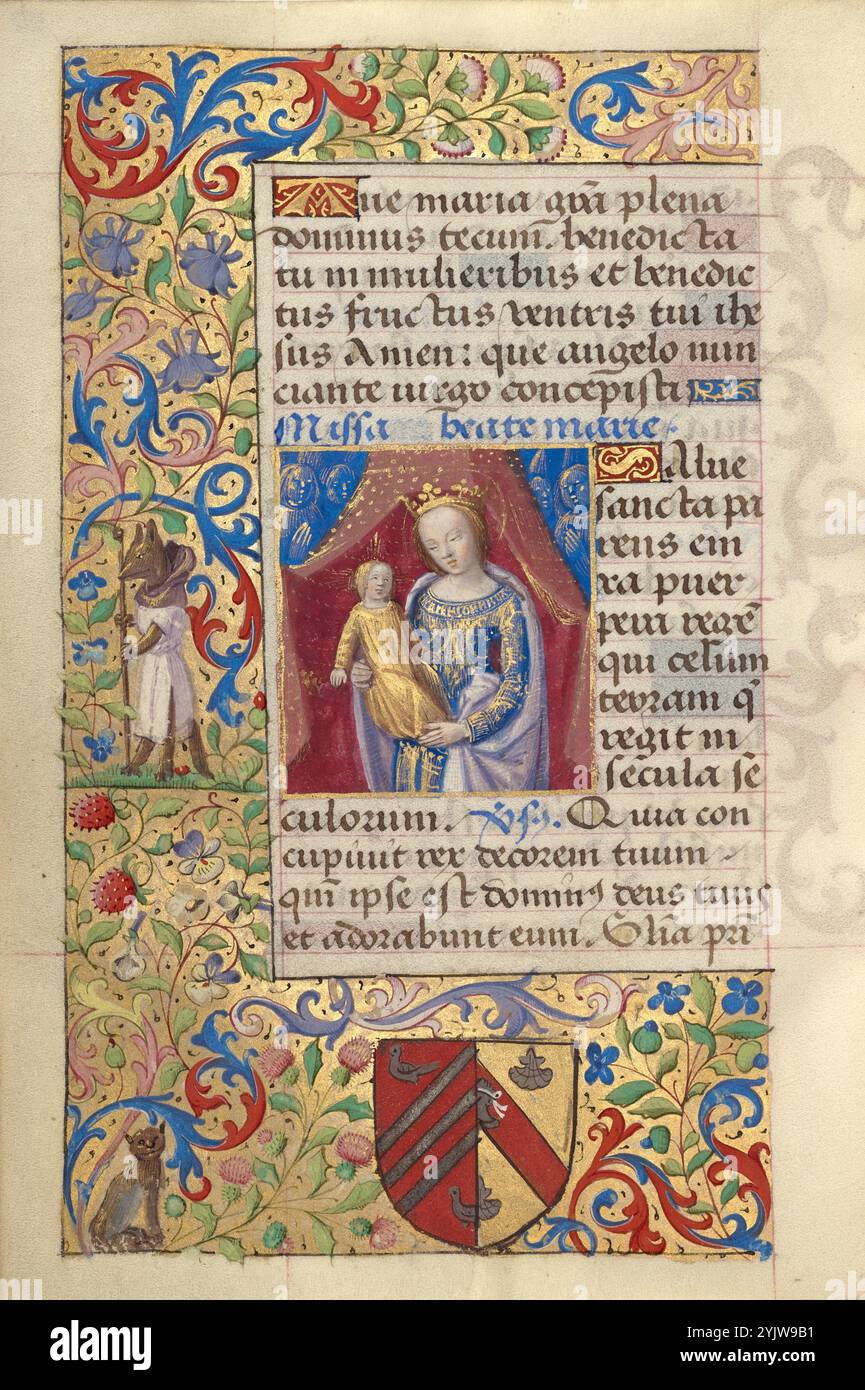 Aue maria gr̃a plena
dominus tecum. benedicta
tu in mulieribus et benedic
tus fructus ventris tui ihe
sus Amen: que angelo nun
ciante uirgo concepisti
Missa beate marie.
Salue
sancta pa
rens eni
xa puer
pera regẽ
qui celum
terram q̃
regit in
secula se
culorum. Vsꝰ. Quia con
cupiuit rex decorem tuum
qm̃ ipse est dominꝰ deus tuus
et adorabunt eum. Glĩa pri
alamy
Image ID: 2YJW9B1
www.alamy.com